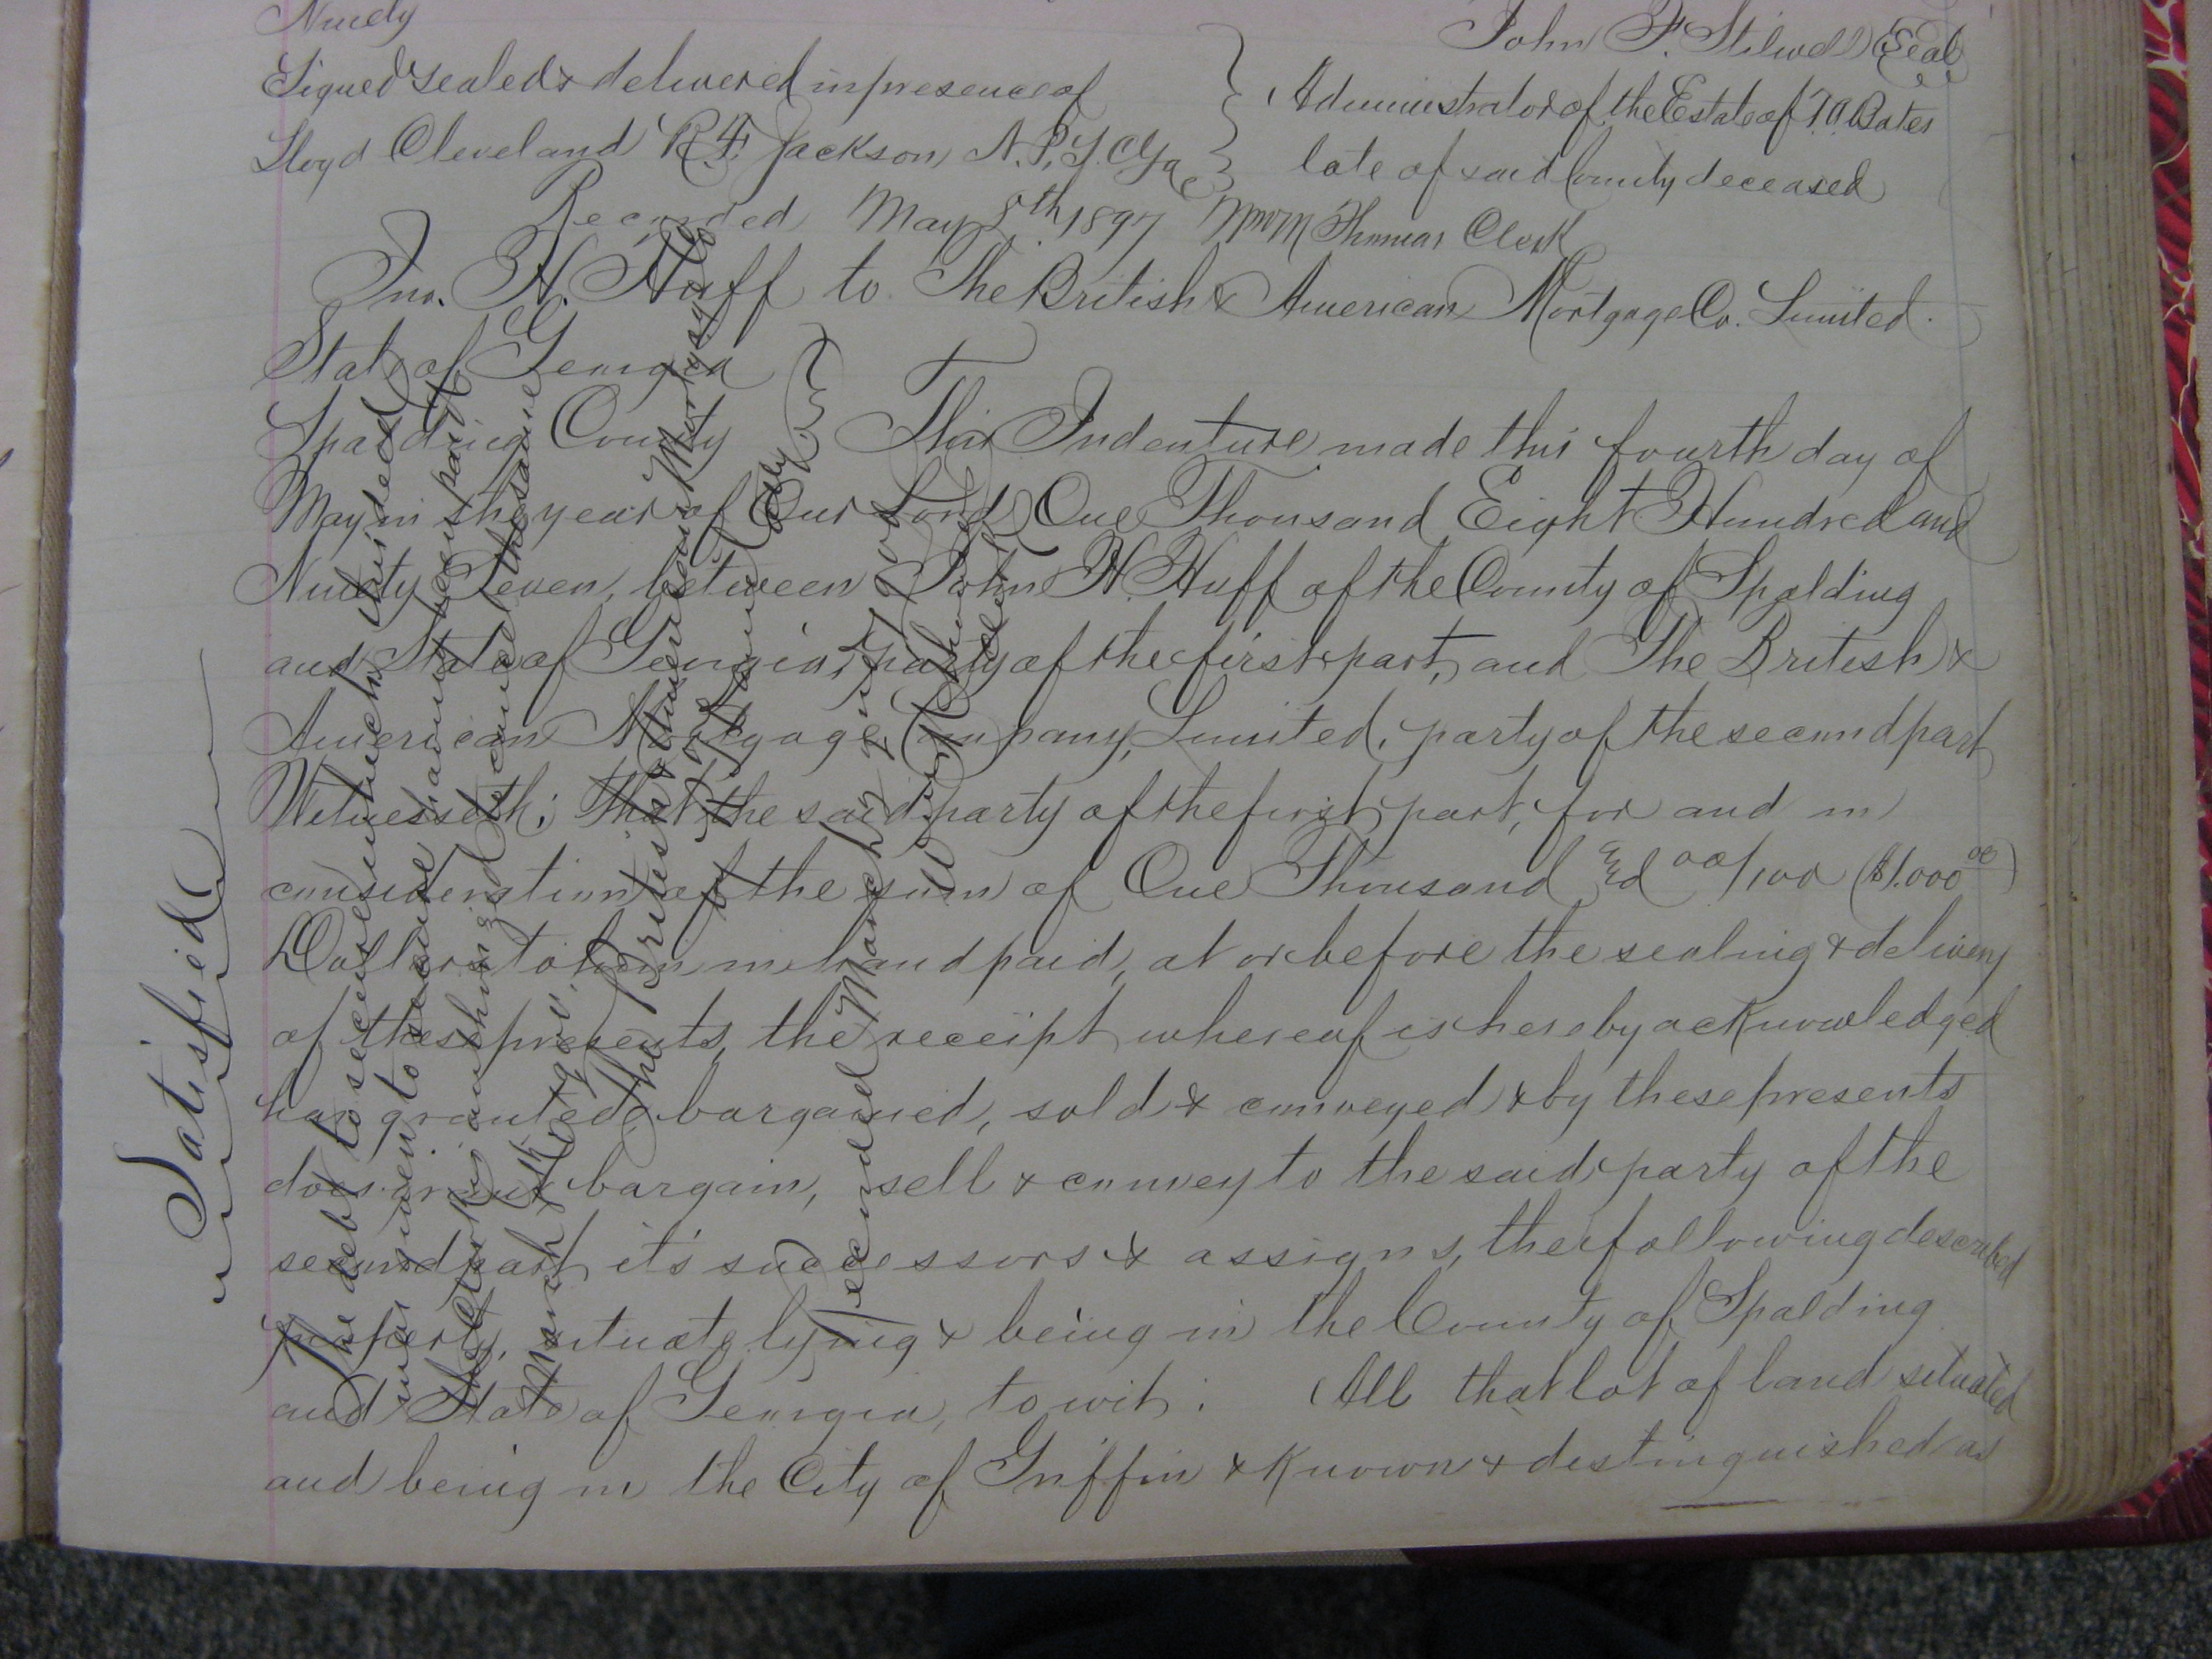 Ninety
John F. Stilwell (Seal)
Signed sealed & delivered in presence of
Administrator of the Estate of T. A. Bates
Lloyd Cleveland R. F. Jackson, N.P.
late of said County deceased
Recorded May 8th 1897 Wm M Thomas Clerk
Jno. H. Huff to The British & American Mortgage Co. Limited.
State of Georgia
Spalding County This Indenture made this fourth day of
May in the year of Our Lord One Thousand Eight Hundred and
Ninety Seven, between John H. Huff of the County of Spalding
and State of Georgia, party of the first part, and The British &
American Mortgage Company, Limited, party of the second part
Witnesseth; That the said party of the first part, for and in
consideration of the sum of One Thousand & 00/100 ($1.000 00)
Dollars to him in hand paid, at or before the sealing & delivery
of these presents, the receipt whereof is hereby acknowledged
has granted, bargained, sold & conveyed & by these presents
does grant bargain, sell & convey to the said party of the
second part it's successors & assigns, the following described
property, situate lying & being in the County of Spalding
and State of Georgia, to wit: All that lot of land situated
and being in the City of Griffin & known & distinguished as
Satisfied
The debt to secure which this deed
was given to secure having been paid
the Clerk is authorized to cancel the same
March 6th 1901.
The British & American Mortgage Co
Recorded March 7th 1901